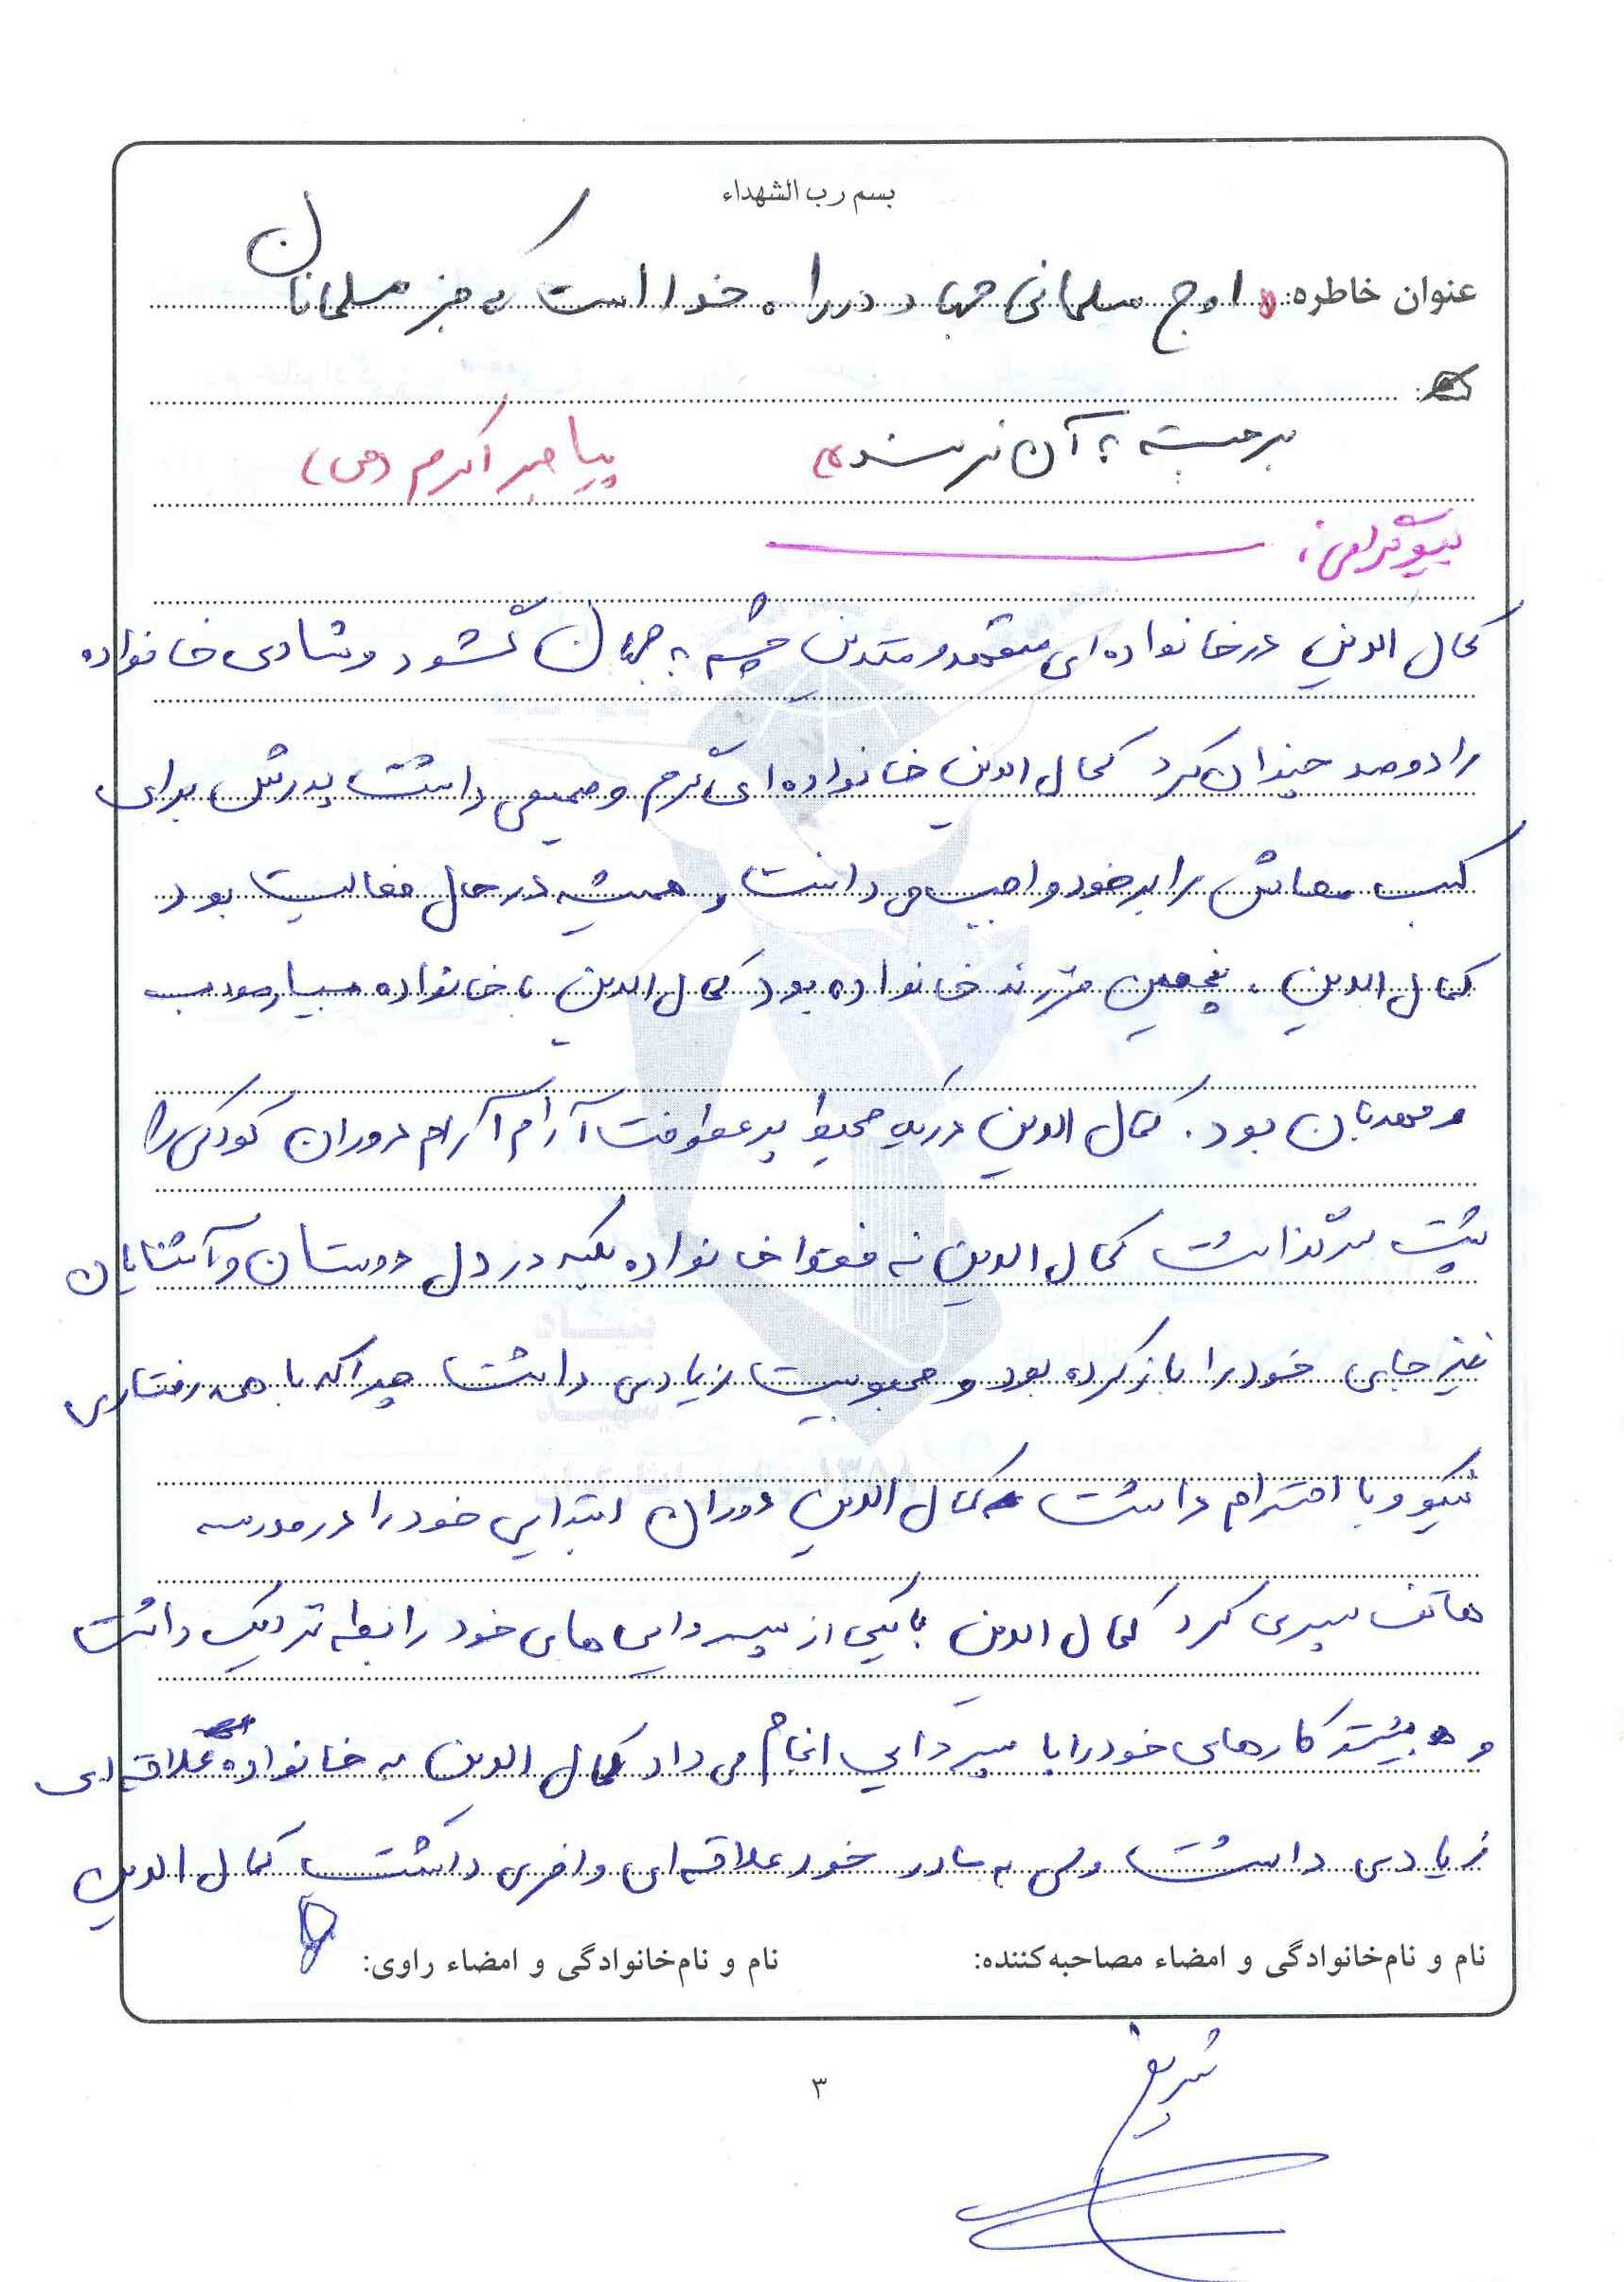 بسم رب الشهداء
عنوان خاطره: اوج مسلمانی جهاد در راه خدا است که جز مسلمانان
برجسته به آن نرسند» پیامبر اکرم (ص)
بیوگرافی:
کمال الدین در خانواده ای متعهد و متدین چشم به جهان گشود و شادی خانواده
را دوصد چندان کرد کمال الدین خانواده ای گرم و صمیمی داشت پدرش برای
کسب معاش را بر خود واجب می دانست و همیشه در حال فعالیت بود
کمال الدین، پنجمین فرزند خانواده بود کمال الدین با خانواده بسیار مودب
و مهربان بود. کمال الدین در یک محیط پر عطوفت آرام آرام دوران کودکی را
پشت سر گذاشت کمال الدین نه فقط خانواده بلکه در دل دوستان و آشنایان
نیز جای خود را باز کرده بود و محبوبیت زیادی داشت چرا که با همه رفتاری
نیکو و با احترام داشت کمال الدین دوران ابتدایی خود را در مدرسه
هاتف سپری کرد کمال الدین با یکی از پسر دایی های خود رابطه نزدیک داشت
و بیشتر کارهای خود را با پسر دایی انجام می داد کمال الدین به خانواده علاقه ای
زیادی داشت ولی به مادر خود علاقه ای وافری داشت کمال الدین
نام و نام‌خانوادگی و امضاء مصاحبه‌کننده: نام و نام‌خانوادگی و امضاء راوی:
۳